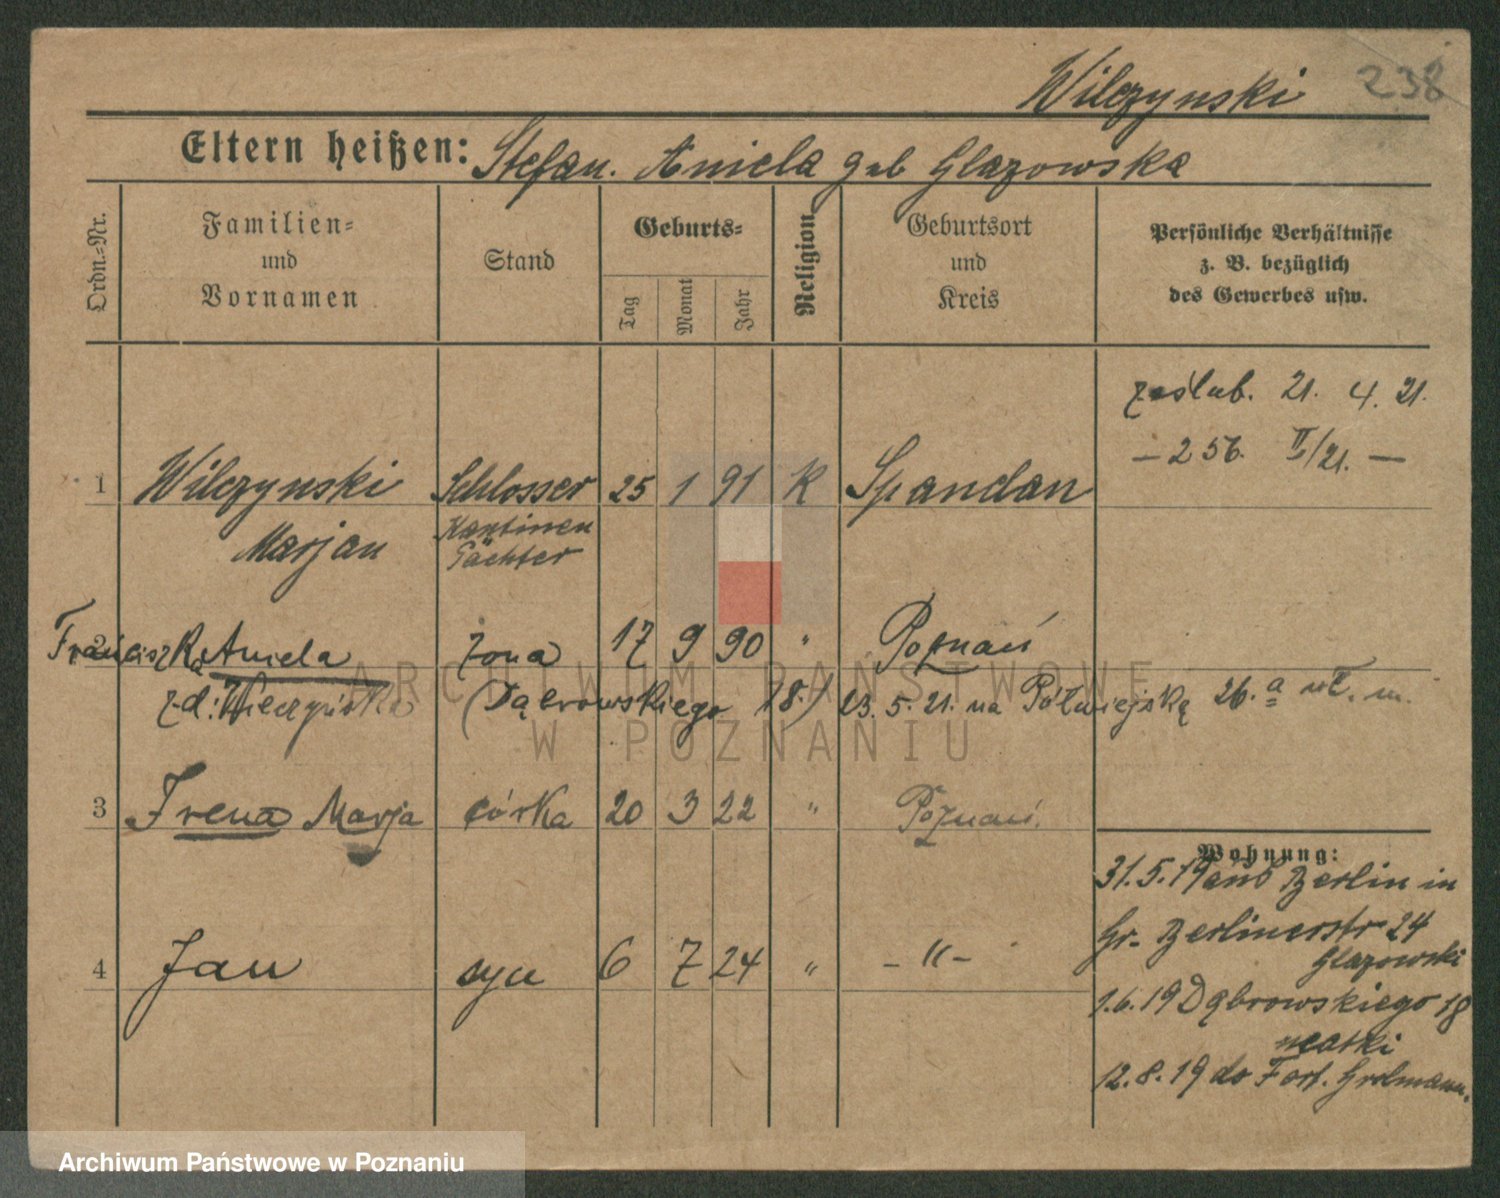 Wilczynski 238
Eltern heißen: Stefan. Aniela geb Glazowska
Ordn.-Nr.
Familien- und Vornamen
Stand
Geburts-
Tag
Monat
Jahr
Religion
Geburtsort und Kreis
Persönliche Verhältnisse
z. B. bezüglich
des Gewerbes usw.
zaślub. 21. 4. 21.
— 256. II/21. —
1 Wilczynski Schlosser 25 1 91 K Spandau
Marjan Kantinen
Pächter
2 Franciszka Aniela żona 17 9 90 " Poznań
z d: (Dąbrowskiego 18.) 23. 5. 21. na Półwiejską 26. a wł. m.
3 Irena Marja córka 20 3 22 " Poznań.
4 Jan syn 6 7 24 " - " -
Wohnung:
31. 5. 19 aus Berlin in
Gr. Berlinerstr 24
Glazowski
1. 6. 19 Dąbrowskiego 18
matki
12. 8. 19 do Fort. Grolmann.
ARCHIWUM PAŃSTWOWE
W POZNANIU
Archiwum Państwowe w Poznaniu